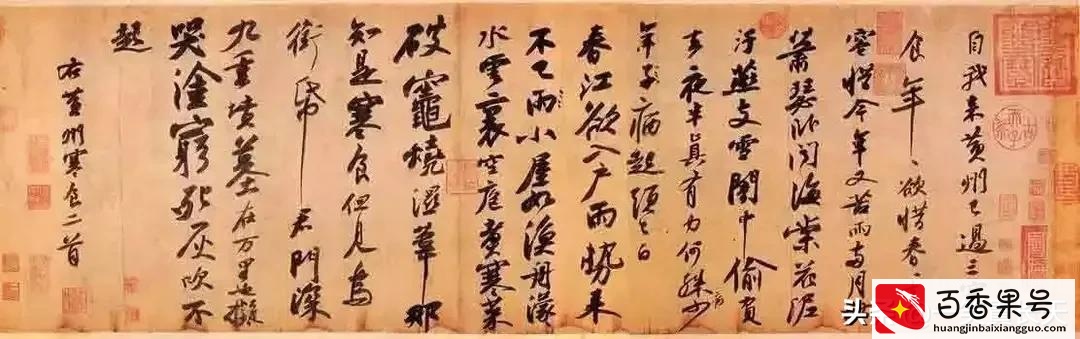 自我来黄州已過三
食年〻欲惜春〻
容惜今年又苦雨两月
蕭瑟卧聞海棠花泥
汙燕支雪闇中偷負
去夜半真有力何殊少
年子病起頭已白
春江欲入户雨勢来
不已雨小屋如漁舟濛〻
水雲裏空庖煮寒菜
破竈燒濕葦那
知是寒食但見烏
銜帋君門深
九重墳墓在万里也擬
哭塗窮死灰吹不
起
右黄州寒食二首
百香果号
huangjinbaixiangguo.com